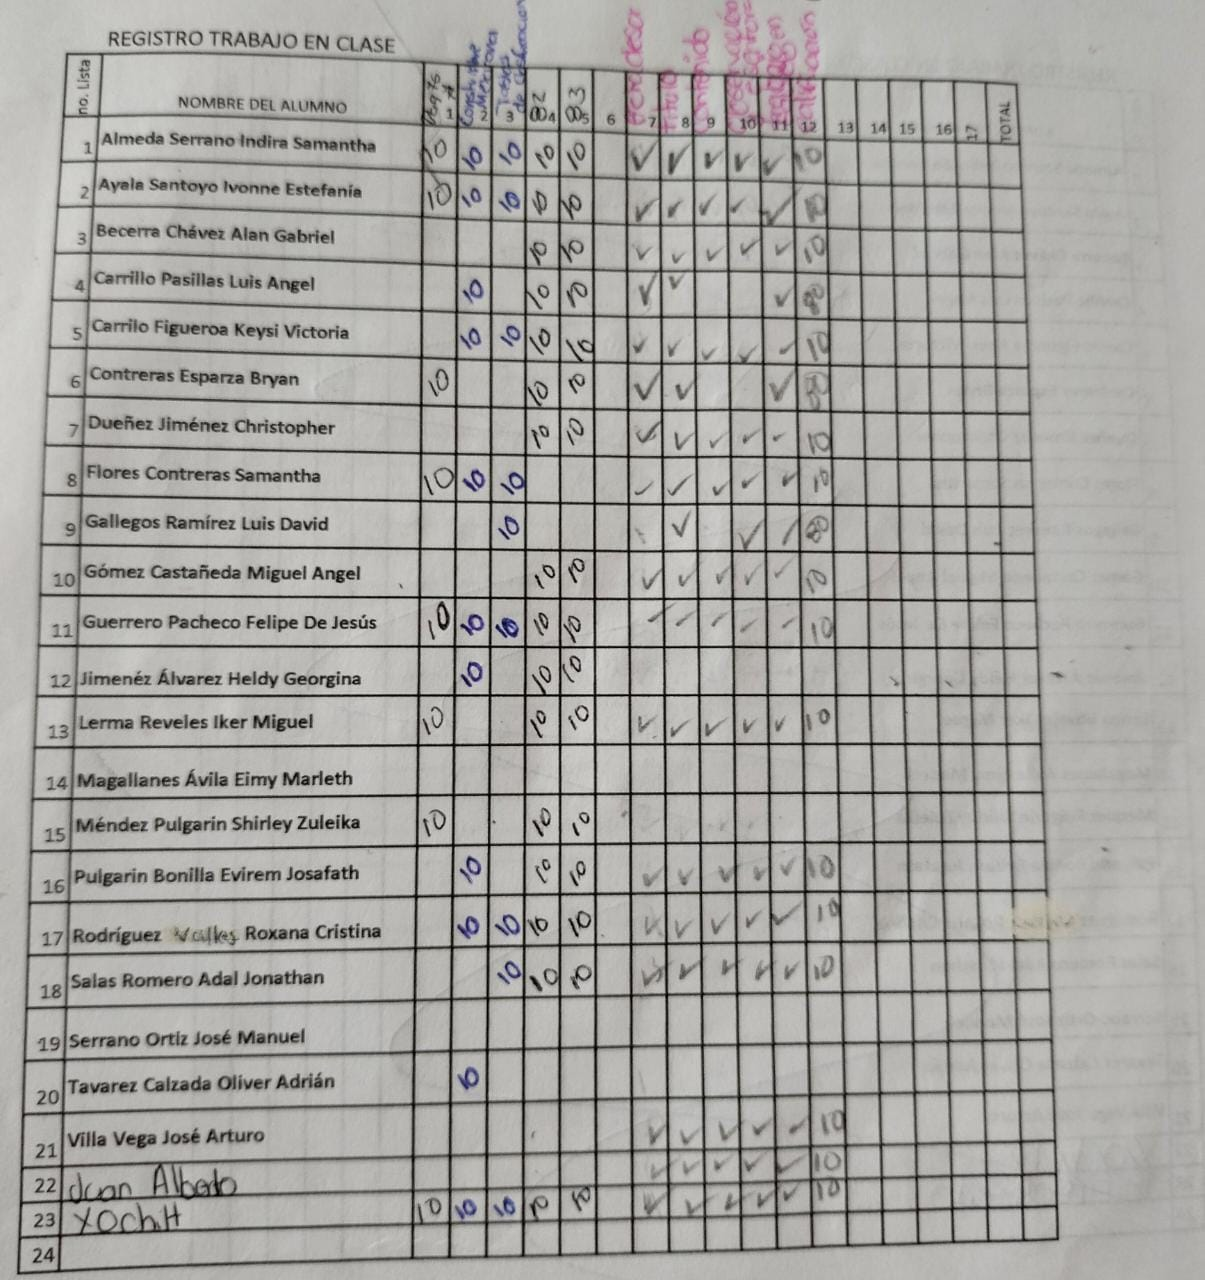 REGISTRO TRABAJO EN CLASE
no. Lista NOMBRE DEL ALUMNO 1 2 3 4 5 6 7 8 9 10 11 12 13 14 15 16 17 TOTAL
Título
1 Almeda Serrano Indira Samantha 10 10 10 10 10 ✓ ✓ ✓ ✓ ✓ 10
2 Ayala Santoyo Ivonne Estefanía 10 10 10 10 10 ✓ ✓ ✓ ✓ ✓ 10
3 Becerra Chávez Alan Gabriel 10 10 ✓ ✓ ✓ ✓ ✓ 10
4 Carrillo Pasillas Luis Angel 10 10 10 ✓ ✓ ✓
5 Carrilo Figueroa Keysi Victoria 10 10 10 10 ✓ ✓ ✓ ✓ ✓ 10
6 Contreras Esparza Bryan 10 10 10 ✓ ✓ ✓
7 Dueñez Jiménez Christopher 10 10 ✓ ✓ ✓ ✓ ✓ 10
8 Flores Contreras Samantha 10 10 10 ✓ ✓ ✓ ✓ ✓ 10
9 Gallegos Ramírez Luis David 10 ✓ ✓ ✓
10 Gómez Castañeda Miguel Angel 10 10 ✓ ✓ ✓ ✓ ✓ 10
11 Guerrero Pacheco Felipe De Jesús 10 10 10 10 10 ✓ ✓ ✓ ✓ ✓ 10
12 Jimenéz Álvarez Heldy Georgina 10 10 10
13 Lerma Reveles Iker Miguel 10 10 10 ✓ ✓ ✓ ✓ ✓ 10
14 Magallanes Ávila Eimy Marleth
15 Méndez Pulgarin Shirley Zuleika 10 10 10
16 Pulgarin Bonilla Evirem Josafath 10 10 10 ✓ ✓ ✓ ✓ ✓ 10
17 Rodríguez Valles Roxana Cristina 10 10 10 10 ✓ ✓ ✓ ✓ ✓ 10
18 Salas Romero Adal Jonathan 10 10 10 ✓ ✓ ✓ ✓ ✓ 10
19 Serrano Ortiz José Manuel
20 Tavarez Calzada Oliver Adrián 10
21 Villa Vega José Arturo ✓ ✓ ✓ ✓ ✓ 10
22 Juan Alberto ✓ ✓ ✓ ✓ ✓ 10
23 Xochitl 10 10 10 10 10 ✓ ✓ ✓ ✓ ✓ 10
24